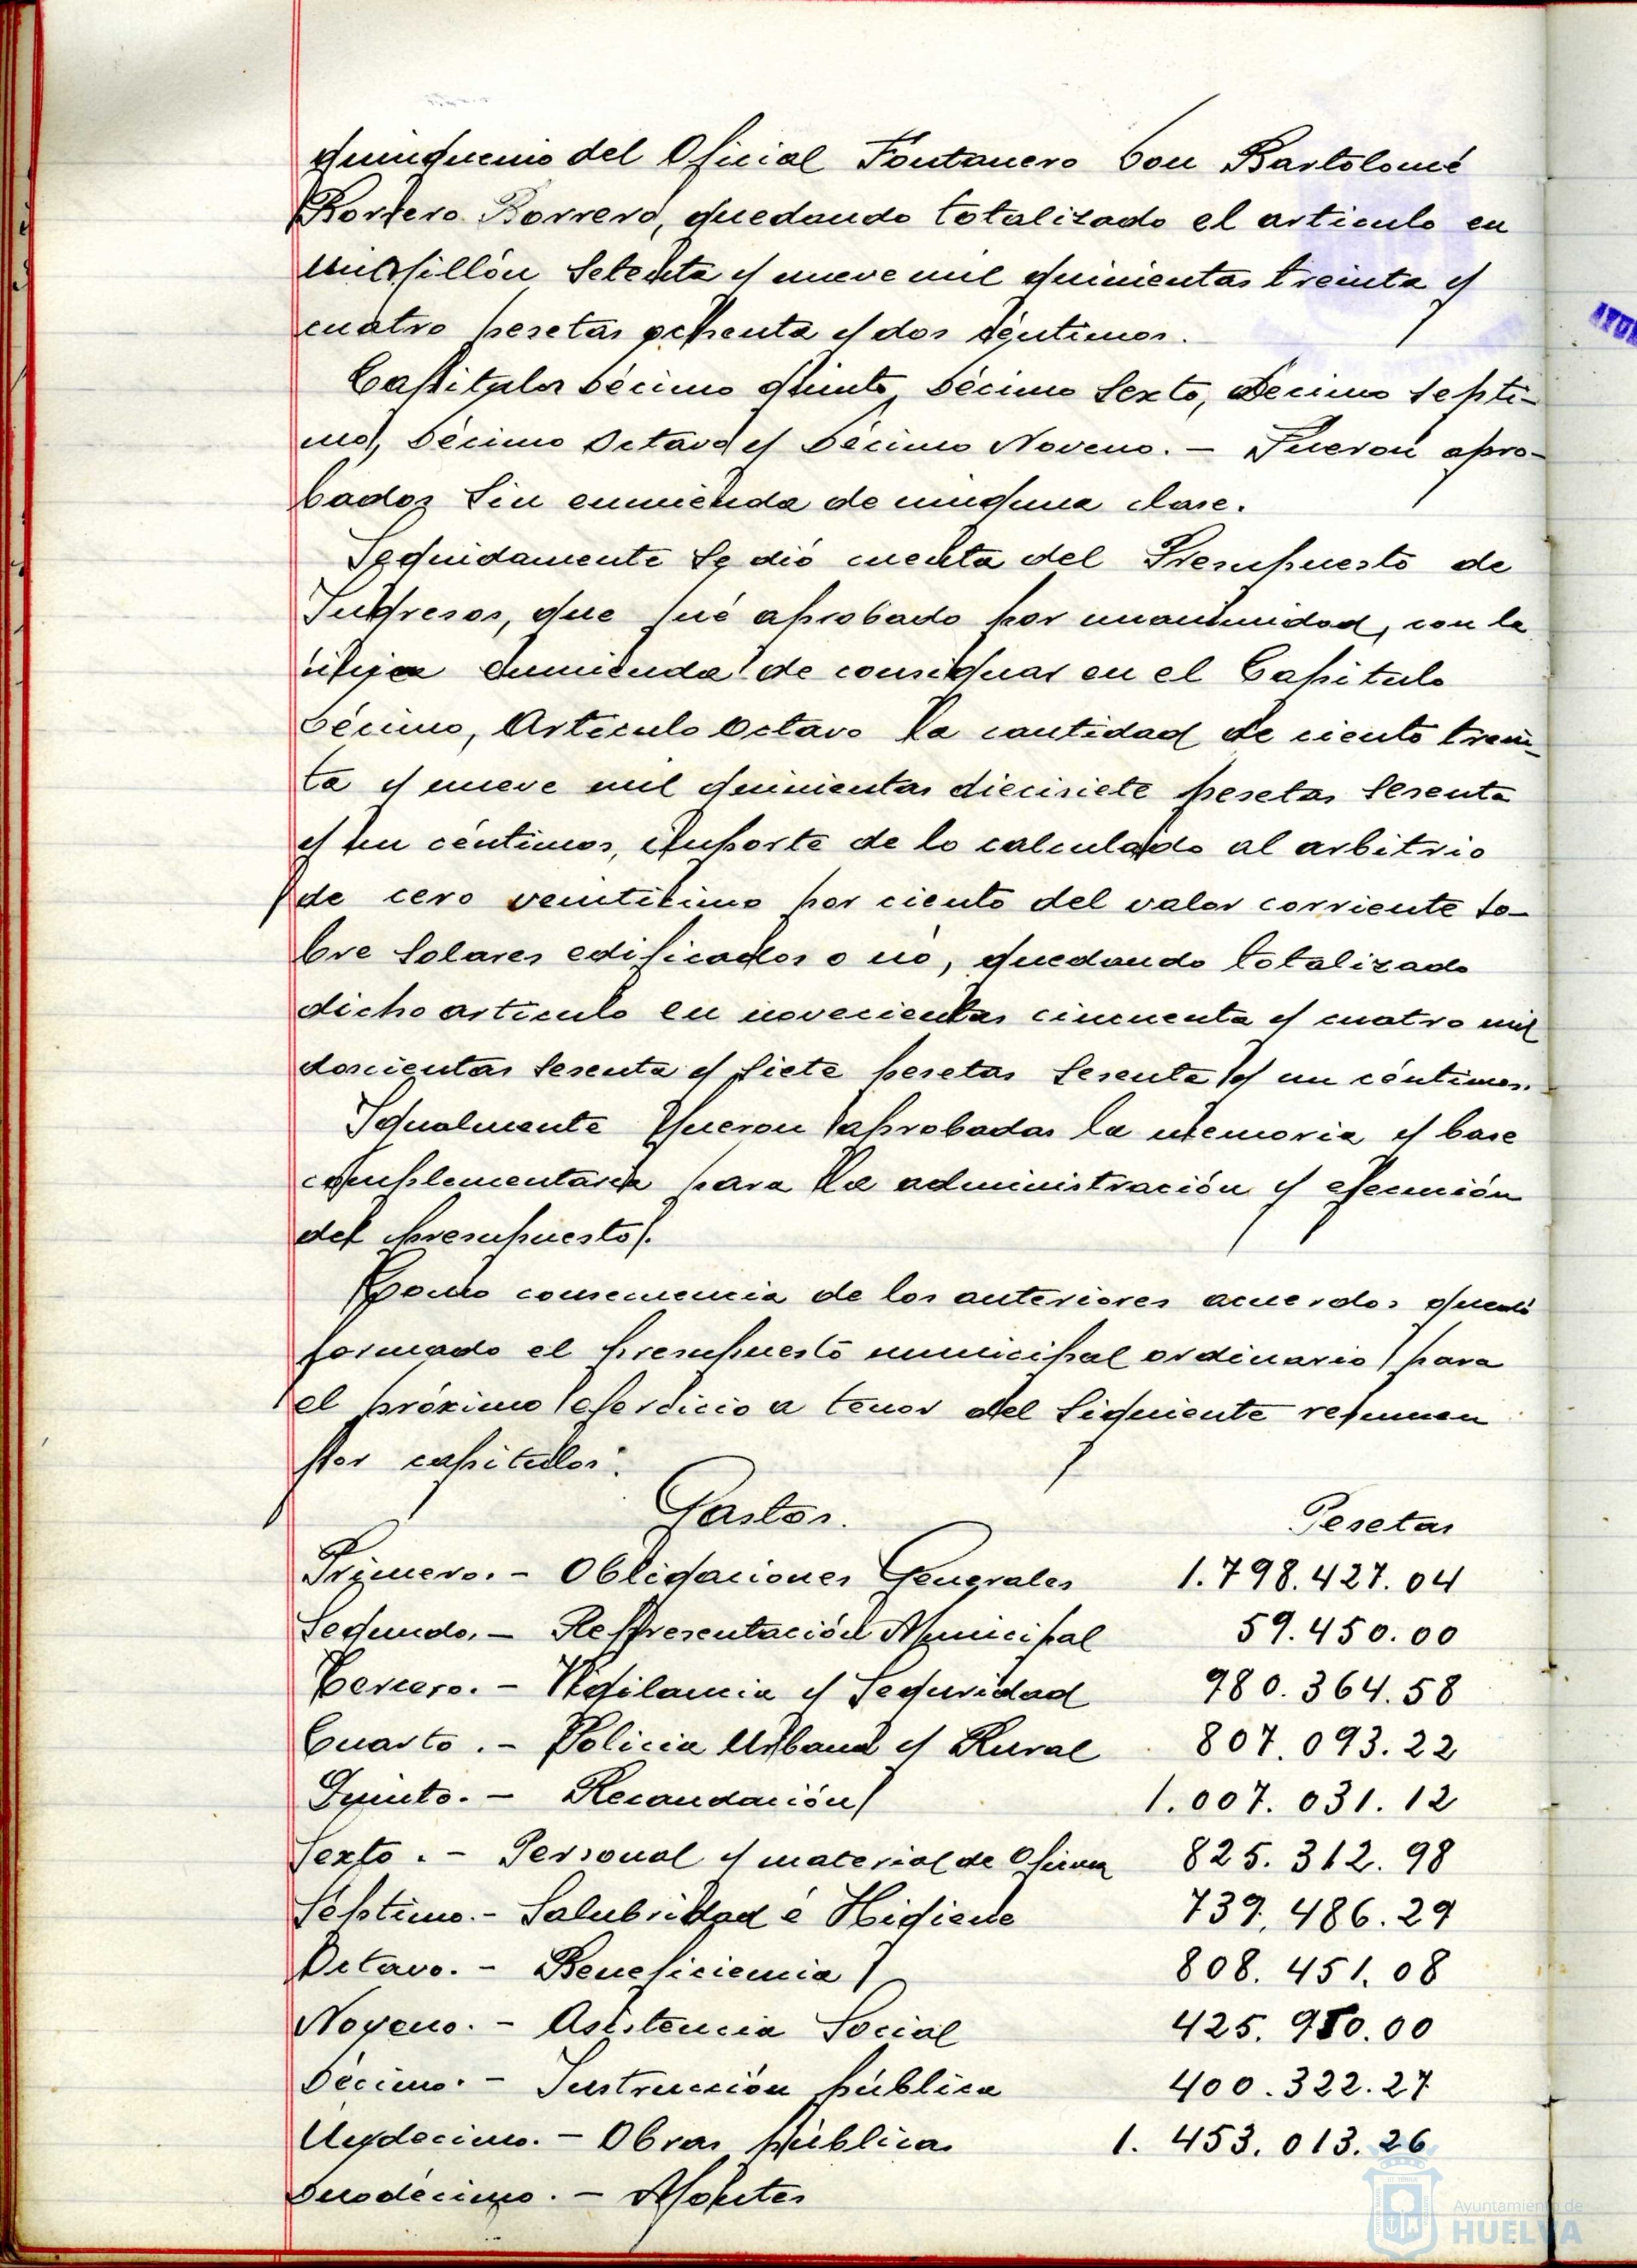 quinquenio del Oficial Fontanero Don Bartolomé
Borrero, quedando totalizado el articulo en
un millón setenta y nueve mil quinientas treinta y
cuatro pesetas ochenta y dos céntimos.
Capitulos Décimo quinto, Décimo Sexto, Décimo septi-
mo, Décimo Octavo y Décimo Noveno. — Fueron apro-
bados sin enmienda de ninguna clase.
Seguidamente se dió cuenta del Presupuesto de
Ingresos, que fué aprobado por unanimidad, con la
única enmienda de consignar en el Capitulo
Décimo, Articulo Octavo la cantidad de ciento trein-
ta y nueve mil quinientas diecisiete pesetas sesenta
y un céntimos, importe de lo calculado al arbitrio
de cero por ciento del valor corriente so-
bre solares edificados o nó, quedando totalizado
dicho articulo en novecientas cincuenta y cuatro mil
doscientas sesenta y siete pesetas sesenta y un céntimos.
Igualmente fueron aprobadas la memoria y base
complementaria para la administración y ejecución
del presupuesto.
Como consecuencia de los anteriores acuerdos quedó
formado el presupuesto municipal ordinario para
el próximo ejercicio a tenor del siguiente resumen
por capitulos:
Gastos. Pesetas
Primero. - Obligaciones Generales 1.798.427.04
Segundo. - Representación Municipal 59.450.00
Tercero. - Vigilancia y Seguridad 980.364.58
Cuarto. - Policia Urbana y Rural 807.093.22
Quinto. - Recaudación 1.007.031.12
Sexto. - Personal y material de Oficina 825.312.98
Séptimo. - Salubridad é Higiene 739.486.29
Octavo. - Beneficiencia 808.451.08
Noveno. - Asistencia Social
Décimo. - Instrucción pública 400.322.27
Undecimo. - Obras públicas 1.453.013.26
Duodécimo. - Montes
Ayuntamiento de
HUELVA